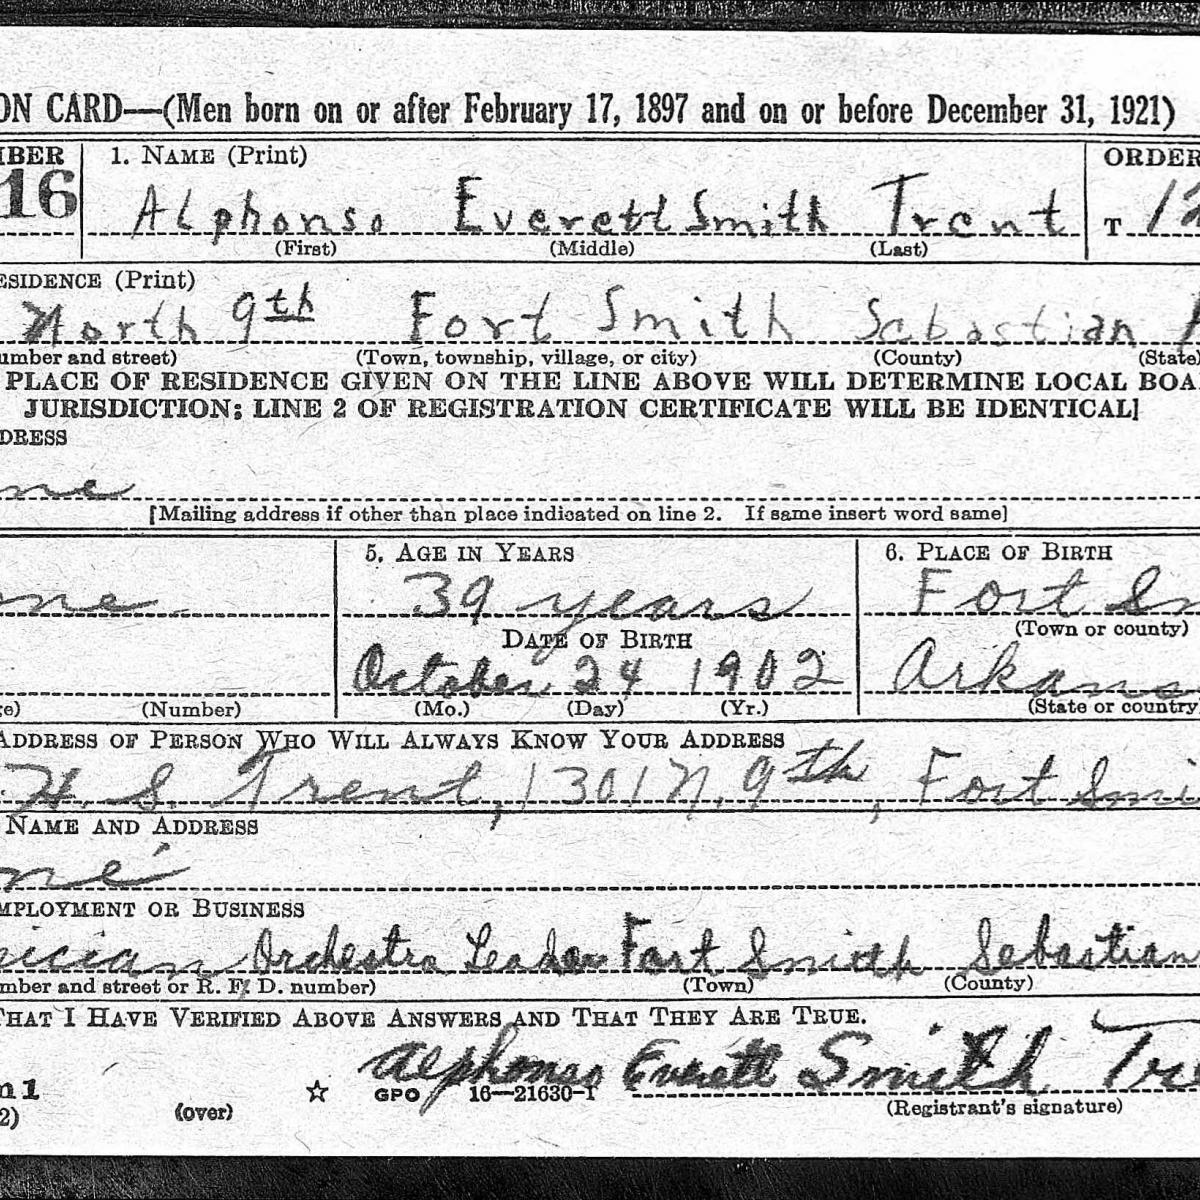 ON CARD—(Men born on or after February 17, 1897 and on or before December 31, 1921)
MBER 1. NAME (Print) ORDER
16 Alphonso Everett Smith Trent T 12
(First) (Middle) (Last)
ESIDENCE (Print)
North 9th Fort Smith Sebastian A
umber and street) (Town, township, village, or city) (County) (State)
PLACE OF RESIDENCE GIVEN ON THE LINE ABOVE WILL DETERMINE LOCAL BOA
JURISDICTION; LINE 2 OF REGISTRATION CERTIFICATE WILL BE IDENTICAL]
DDRESS
me
[Mailing address if other than place indicated on line 2. If same insert word same]
5. AGE IN YEARS 6. PLACE OF BIRTH
one 39 years Fort Sm
DATE OF BIRTH (Town or county)
October 24 1902 Arkans
ge) (Number) (Mo.) (Day) (Yr.) (State or country)
ADDRESS OF PERSON WHO WILL ALWAYS KNOW YOUR ADDRESS
H. S. Trent, 1301 N. 9th, Fort Smi
NAME AND ADDRESS
ne
MPLOYMENT OR BUSINESS
sician Orchestra Leader Fort Smith Sebastian
mber and street or R. F. D. number) (Town) (County)
THAT I HAVE VERIFIED ABOVE ANSWERS AND THAT THEY ARE TRUE.
Alphonso Everett Smith Tre
m 1 (over) ☆ GPO 16—21630-1
2) (Registrant's signature)